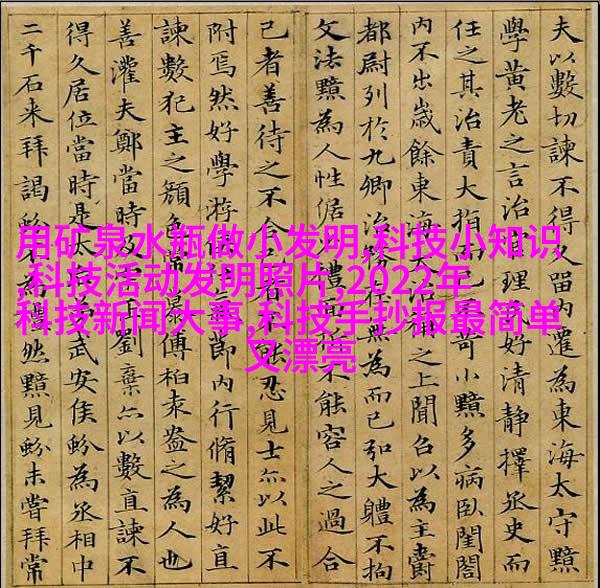 夫以數切諫不得久留內遷為東海太守黯
學黃老之言治官理民好清靜擇丞史而
任之其治責大指苛小黯多病臥閨閤
內不出歲餘東海大治稱之上聞召以為主爵
都尉列於九卿治務在無為而已弘大體不拘
文法黯為人性倨禮面折不能容人之過合
己者善待之不合己者不能忍見士亦以此不
附焉然好學游節內行脩絜好直
諫數犯主之顏色常慕傅柏袁盎之為人也
善灌夫鄭當時及正劉棄亦以數直諫不
得久居位當時是太武安侯蚡為丞相中
二千石來拜謁蚡不為禮然黯見蚡未嘗拜常
用矿泉水瓶做小发明,科技小知识
,科技活动发明照片,2022年
科技新闻大事,科技手抄报最简单
又漂亮